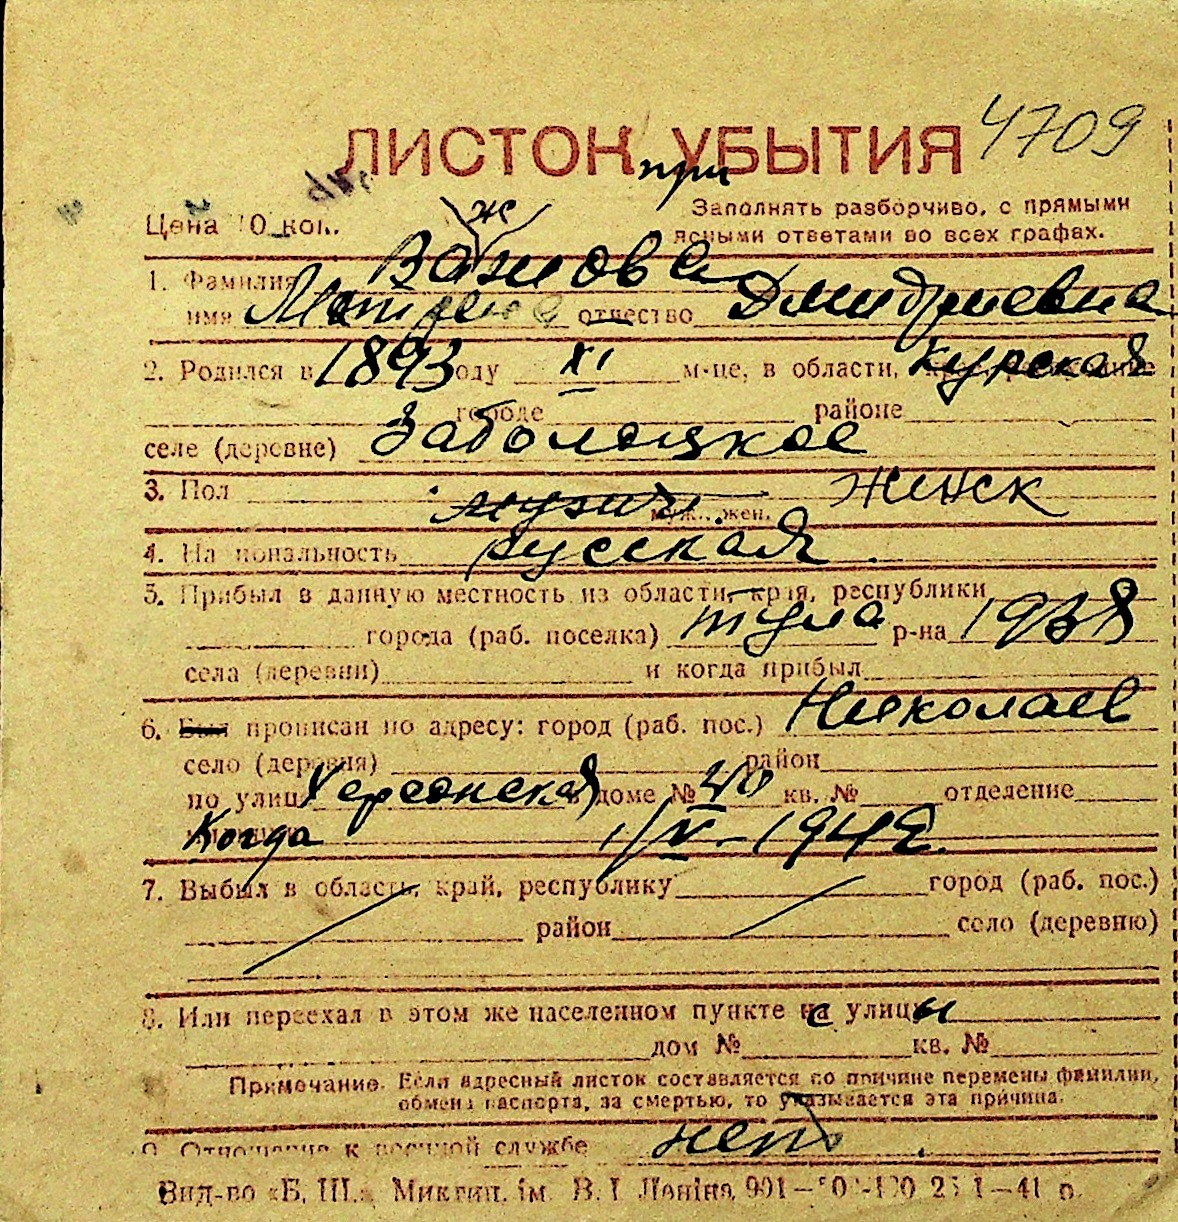 4709
ЛИСТОК УБЫТИЯ
при
Цена 10 коп.
Заполнять разборчиво, с прямыми
ясными ответами во всех графах.
ж
1. Фамилия Важнова
имя Матрена отчество Дмидриевна
2. Родился в 1893 году XI м-це, в области, Курская
городе районе
селе (деревне) Заболоцкое
3. Пол мужч женск
муж., жен.
4. Национальность русская
5. Прибыл в данную местность из области, края, республики
города (раб. поселка) Тула р-на 1938
села (деревни) и когда прибыл
6. Был прописан по адресу: город (раб. пос.) Николаев
село (деревня) район
по улице Херсонская в доме № 40 кв. № отделение
Когда 1/V-1942
7. Выбыл в область, край, республику город (раб. пос.)
район село (деревню)
8. Или переехал в этом же населенном пункте с улицы
дом № кв. №
Примечание. Если адресный листок составляется по причине перемены фамилии,
обмена паспорта, за смертью, то указывается эта причина.
9. Отношение к военной службе нет
Вид-во «Б. Ш.» Микгип. ім. В. І. Леніна